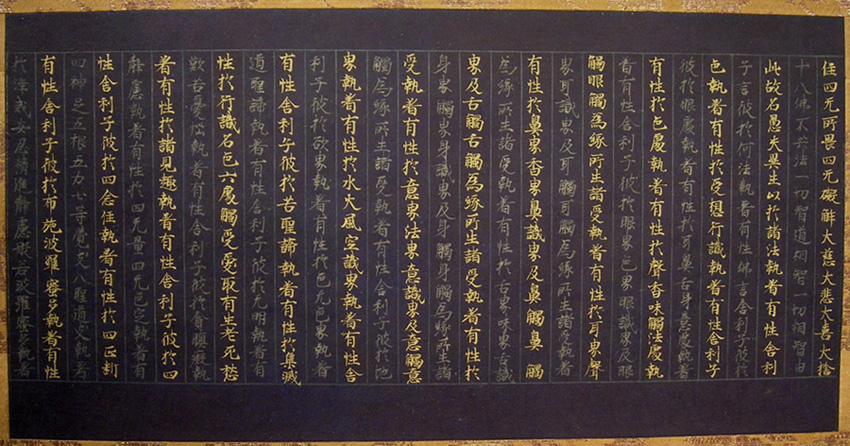 住四无所畏四无礙解大慈大悲大喜大捨
十八佛不共法一切智道相智一切相智由
此故名愚夫異生以於諸法執著有性舍利
子言彼於何法執著有性佛言舍利子彼於
色執著有性於受想行識執著有性舍利子
彼於眼處執著有性於耳鼻舌身意處執著
有性於色處執著有性於聲香味觸法處執
著有性舍利子彼於眼界色界眼識界及眼
觸眼觸為緣所生諸受執著有性於耳界聲
界耳識界及耳觸耳觸為緣所生諸受執著
有性於鼻界香界鼻識界及鼻觸鼻觸
為緣所生諸受執著有性於舌界味界舌識
界及舌觸舌觸為緣所生諸受執著有性於
身界觸界身識界及身觸身觸為緣所生諸
受執著有性於意界法界意識界及意觸意
觸為緣所生諸受執著有性舍利子彼於地
界執著有性於水火風空識界執著有性舍
利子彼於欲界執著有性於色无色界執著
有性舍利子彼於苦聖諦執著有性於集滅
道聖諦執著有性舍利子彼於无明執著有
性於行識名色六處觸受愛取有生老死愁
歎苦憂惱執著有性舍利子彼於貪瞋癡執
著有性於諸見趣執著有性舍利子彼於四
靜慮執著有性於四无量四无色定執著有
性舍利子彼於四念住執著有性於四正斷
四神足五根五力七等覺支八聖道支執著
有性舍利子彼於布施波羅蜜多執著有性
於淨戒安忍精進靜慮般若波羅蜜多執著